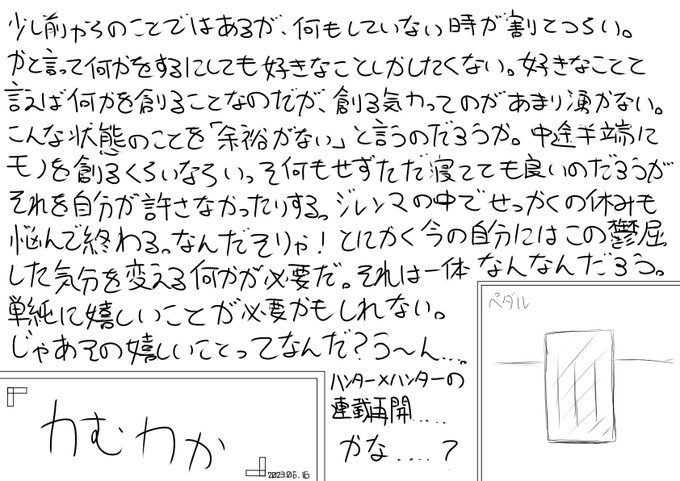 少し前からのことではあるが、何もしていない時が割とつらい。
かと言って何かをするにしても好きなことしかしたくない。好きなことと
言えば何かを創ることなのだが、創る気力ってのがあまり湧かない。
こんな状態のことを「余裕がない」と言うのだろうか。中途半端に
モノを創るくらいならいっそ何もせずただ寝てても良いのだろうが
それを自分が許さなかったりする。ジレンマの中でせっかくの休みも
悩んで終わる。なんだそりゃ!とにかく今の自分にはこの鬱屈
した気分を変える何かが必要だ。それは一体なんなんだろう。
単純に嬉しいことが必要かもしれない。
じゃあその嬉しいことってなんだ?う〜ん....
ハンター×ハンターの
連載再開.....
かな....?
ペダル
カむカか
2023.05.16